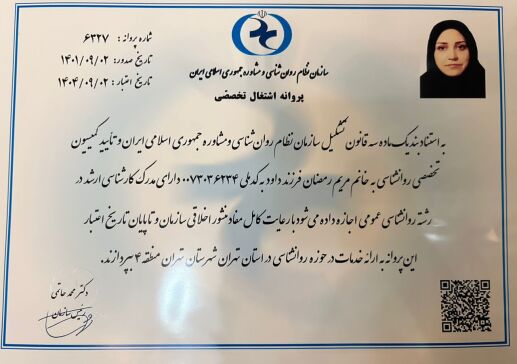 شماره پروانه : ۶۳۲۷
تاریخ صدور: ۱۴۰۱/۰۹/۰۲
تاریخ اعتبار : ۱۴۰۴/۰۹/۰۲
سازمان نظام روان شناسی و مشاوره جمهوری اسلامی ایران
پروانه اشتغال تخصصی
به استناد بند یک ماده سه قانون تشکیل سازمان نظام روان شناسی و مشاوره جمهوری اسلامی ایران و تأیید کمیسیون
تخصصی روانشناسی به خانم مریم رمضان فرزند داود به کدملی ۰۰۷۳۰۳۶۲۳۴ دارای مدرک کارشناسی ارشد در
رشته روانشناسی عمومی اجازه داده می شود با رعایت کامل مفاد منشور اخلاقی سازمان و تا پایان تاریخ اعتبار
این پروانه به ارائه خدمات در حوزه روانشناسی در استان تهران شهرستان تهران منطقه ۴ بپردازند.
دکتر محمد حاتمی
رئیس سازمان